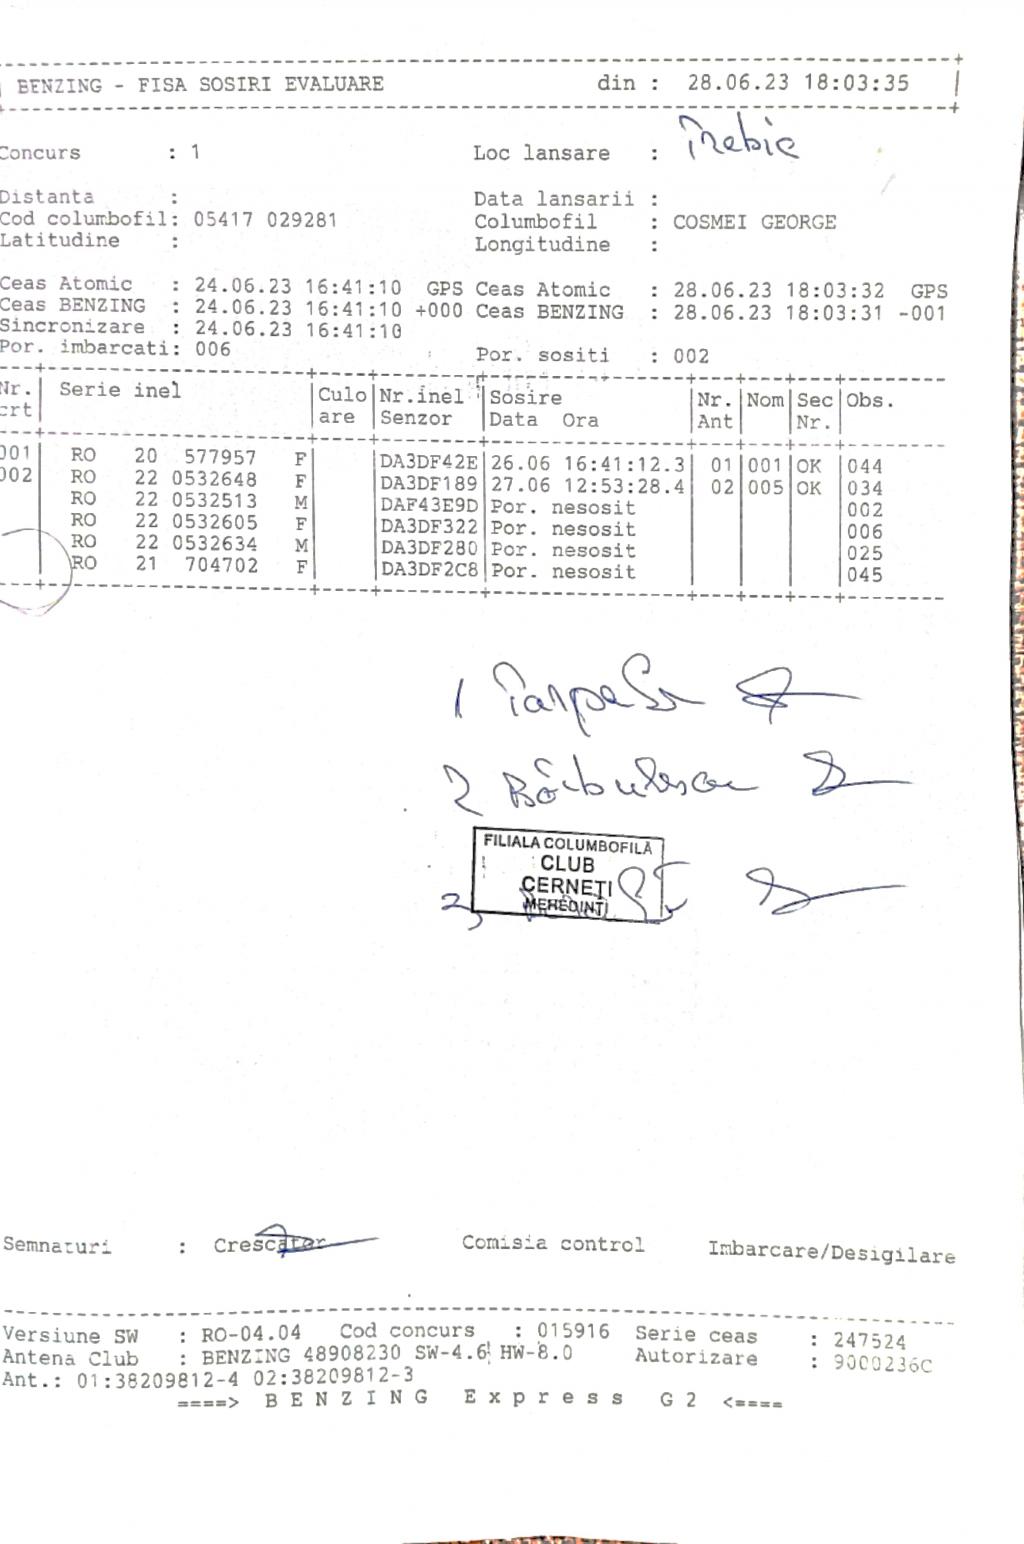 BENZING - FISA SOSIRI EVALUARE din : 28.06.23 18:03:35
Concurs : 1 Loc lansare : Trebic
Distanta : Data lansarii :
Cod columbofil: 05417 029281 Columbofil : COSMEI GEORGE
Latitudine : Longitudine :
Ceas Atomic : 24.06.23 16:41:10 GPS Ceas Atomic : 28.06.23 18:03:32 GPS
Ceas BENZING : 24.06.23 16:41:10 +000 Ceas BENZING : 28.06.23 18:03:31 -001
Sincronizare : 24.06.23 16:41:10
Por. imbarcati: 006 Por. sositi : 002
Nr. Serie inel Culo Nr.inel Sosire Nr. Nom Sec Obs.
crt are Senzor Data Ora Ant Nr.
001 RO 20 577957 F DA3DF42E 26.06 16:41:12.3 01 001 OK 044
002 RO 22 0532648 F DA3DF189 27.06 12:53:28.4 02 005 OK 034
RO 22 0532513 M DAF43E9D Por. nesosit 002
RO 22 0532605 F DA3DF322 Por. nesosit 006
RO 22 0532634 M DA3DF280 Por. nesosit 025
RO 21 704702 F DA3DF2C8 Por. nesosit 045
1
2 Bărbulescu
FILIALA COLUMBOFILĂ
CLUB
CERNEȚI
MEHEDINȚI
Semnaturi : Crescator Comisia control Imbarcare/Desigilare
Versiune SW : RO-04.04 Cod concurs : 015916 Serie ceas : 247524
Antena Club : BENZING 48908230 SW-4.6 HW-8.0 Autorizare : 9000236C
Ant.: 01:38209812-4 02:38209812-3
====> B E N Z I N G E x p r e s s G 2 <====